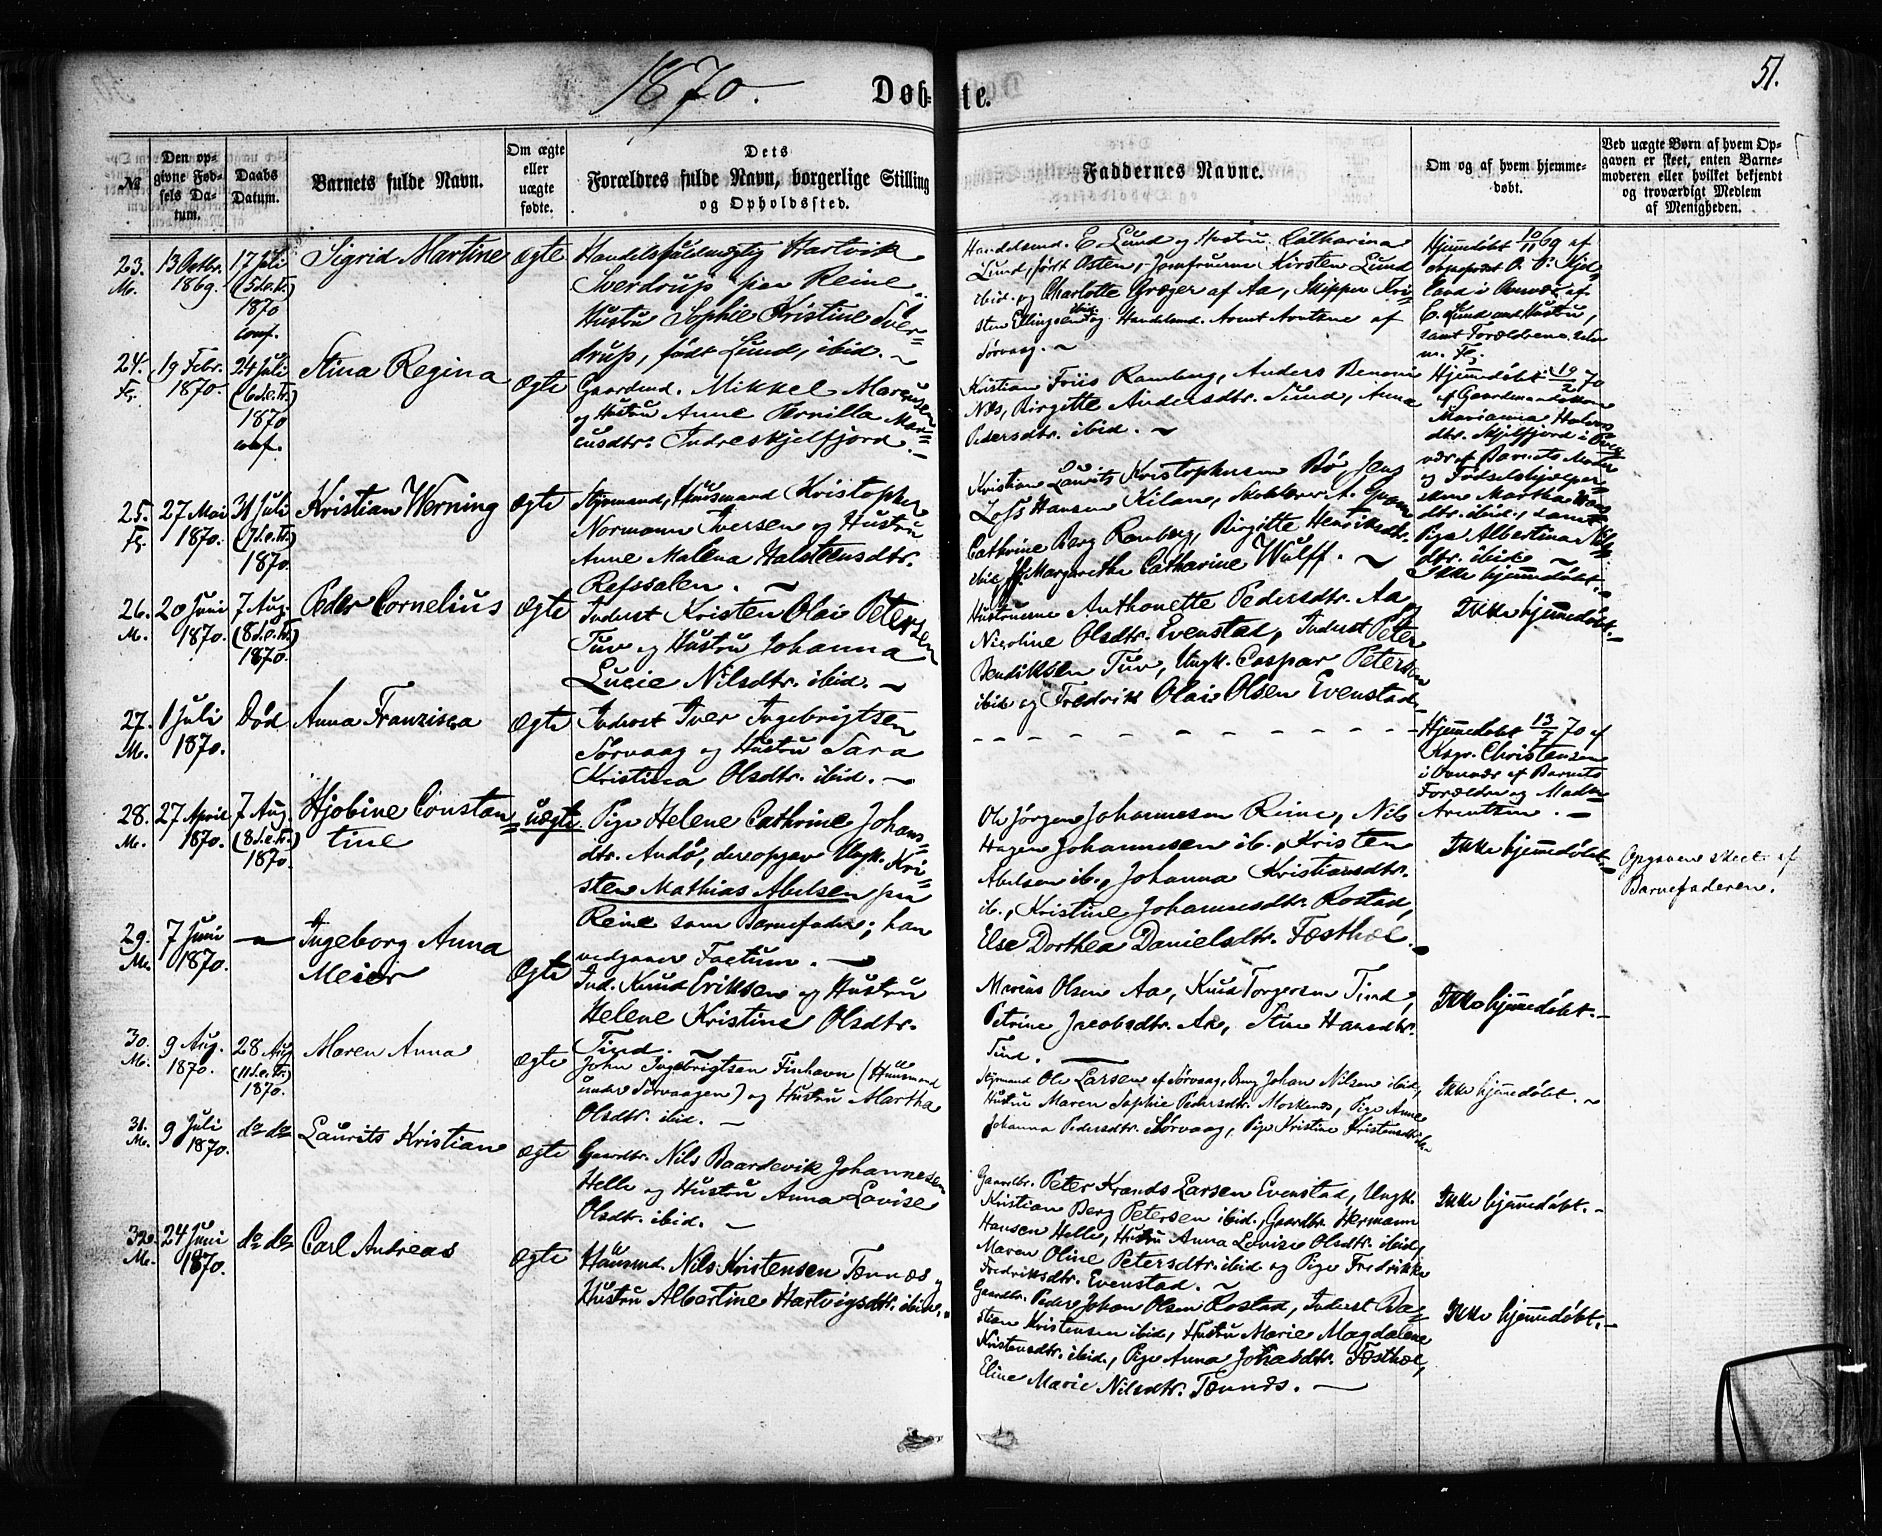 1870.
Døb-
te.
51.
№
Den op-
givne Fød-
sels Da-
tum.
Daabs
Datum.
Barnets fulde Navn.
Om ægte
eller
uægte
fødte.
Dets
Forældres fulde Navn, borgerlige Stilling
og Opholdssted.
Faddernes Navne.
Om og af hvem hjemme-
døbt.
Ved uægte Børn af hvem Op-
gaven er skeet, enten Barne-
moderen eller hvilket bekjendt
og troværdigt Medlem
af Menigheden.
23.
M.
13 Octbr.
1869.
17 Juli
(5 S. e. Tr.)
1870
conf.
Sigrid Martine
Ægte
Handelsfuldmægtig Hartvik
Sverdrup paa Reine
Hustru Sophie Kristine Sver-
drup, født Lund, ibid.
Handelsmd. E. Lund og Hustru Catharina
Lund, født Osten, Jomfruerne Kirsten Lund
ibid. og Charlotte Grøger af Aa, Skipper Kri-
sten Ellingsen ibid. og Handelsmd. Arnt Arntsen af
Sørvaag.
Hjemmedøbt 10/11 69 af
E. Lund and Hustru,
samt Forældrene
24.
Fl.
19 Febr.
1870.
24 Juli
(6 S. e. Tr.)
1870
conf.
Stina Regina
Ægte
Gaardmd. Mikkel Marcusen
og Hustru Anne Pernilla Mar-
cusdtr. Indreskjelfjord.
Kristian Friis Ramberg, Anders Benoni
Nils, Birgitte Andersdtr. Sund, Anna
Pedersdtr. ibid.
Hjemmedøbt 19/2 70
af Gaardmandskone
Marianna
dtr. Skjelfjord i
af Barnets Moder
og Fødselshjælper-
sken Martha Hans-
dtr. ibid., samt
Pige Albertina Nils-
dtr. ibid.
25.
Fl.
27 Mai
1870.
31 Juli
(7 S. e. Tr.)
1870.
Kristian Werning
Ægte
Styrmand, Huusmand Kristopher
Normann Iversen og Hustru
Anne Malena Halstensdtr.
Refssalen.
Kristian Laurits Kristophersen Bø, Jens
Loss Hansen Kilan,
Cathrine Berg Ramberg, Birgitte Henriksdtr.
ibid. Margarethe Catharine Wulff.
Ikke hjemmedøbt.
26.
M.
20 Juni
1870.
7 Aug.
(8 S. e. Tr.)
1870.
Peder Cornelius
Ægte
Inderst Kristen Olai Petersen
Tuv og Hustru Johanna
Lucie Nilsdtr. ibid.
Hustruerne Anthonette Pedersdtr. Aa og
Nicoline Olsdtr. Evenstad, Inderst Peter
Bendiksen Tuv, Ungk. Caspar Petersen
ibid. og Fredrik Olai Olsen Evenstad.
Ikke hjemmedøbt.
27.
M.
1 Juli
1870.
Død
Anna Franzisca
Ægte
Inderst Iver Ingebrigtsen
Sørvaag og Hustru Sara
Kristina Olsdtr. ibid.
Hjemmedøbt 13/7 70 af
Ksgr. Christensen
af Barnets
Forældre og Madam
Arentsen.
28.
M.
27 April
1870.
7 Aug.
(8 S. e. Tr.)
1870.
Hjobine Constan-
tine
uægte
Pige Helene Cathrine Johans-
dtr. Andø, der opgav Ungk. Kri-
sten Mathias Abelsen paa
Reine som Barnefader; han
vedgaar Factum.
Ole Jørgen Johannesen Reine, Nils
Hagen Johannesen ib., Kristen
Abelsen ib., Johanna Kristiansdtr.
ib., Kristine Johannesdtr. Rostad,
Else Dorthea Danielsdtr. Fæsthæl.
Ikke hjemmedøbt.
Opgaven skeet af
Barnefaderen.
29.
M.
7 Juni
1870.
Ingeborg Anna
Meier
Ægte
Ind. Knud Eriksen og Hustru
Helene Kristine Olsdtr.
Tind.
Marcus Olsen Aa, Knud Torgersen Tind,
Petrine Jacobsdtr. Aa, Stine Hansdtr.
Tind.
Ikke hjemmedøbt.
30.
M.
9 Aug.
1870.
28 Aug.
(11 S. e. Tr.)
1870.
Maren Anna
Ægte
John Ingebrigtsen Finhavn (Huusmand
under Sørvaagen) og Hustru Martha
Olsdtr. ibid.
Styrmand Ole Larsen af Sørvaag, Johan Nilsen ibid.,
Hustru Maren Sophie Pedersdtr. Moskenes, Pige Anne
Johanna Pedersdtr. Sørvaag, Pige Kristine Kristensdtr.
Ikke hjemmedøbt.
31.
M.
9 Juli
1870.
do do
Laurits Kristian
Ægte
Gaardbr. Nils Baardsvik Johannesen
Helle og Hustru Anna Lovise
Olsdtr. ibid.
Gaardbr. Peter Larsen Evenstad, Ungk.
Kristian Berg Petersen ibid., Gaardbr. Hermann
Hansen Helle, Hustru Anna Lovise Olsdtr. ibid.,
Maren Oline Petersdtr. ibid. og Pige Fredrikke
Fredriksdtr. Evenstad.
Ikke hjemmedøbt.
32.
M.
24 Juni
1870.
do do
Carl Andreas
Ægte
Huusmd. Nils Kristensen Tennes og
Hustru Albertine Hartvigsdtr. ibid.
Gaardbr. Peder Johan Olsen Rostad, Inderst Ba-
stian Kristensen ibid., Hustru Marie Magdalene
Kristensdtr. ibid., Pige Anna Johansdtr. Fæsthæl,
Eline Marie Nilsdtr. Tennes.
Ikke hjemmedøbt.